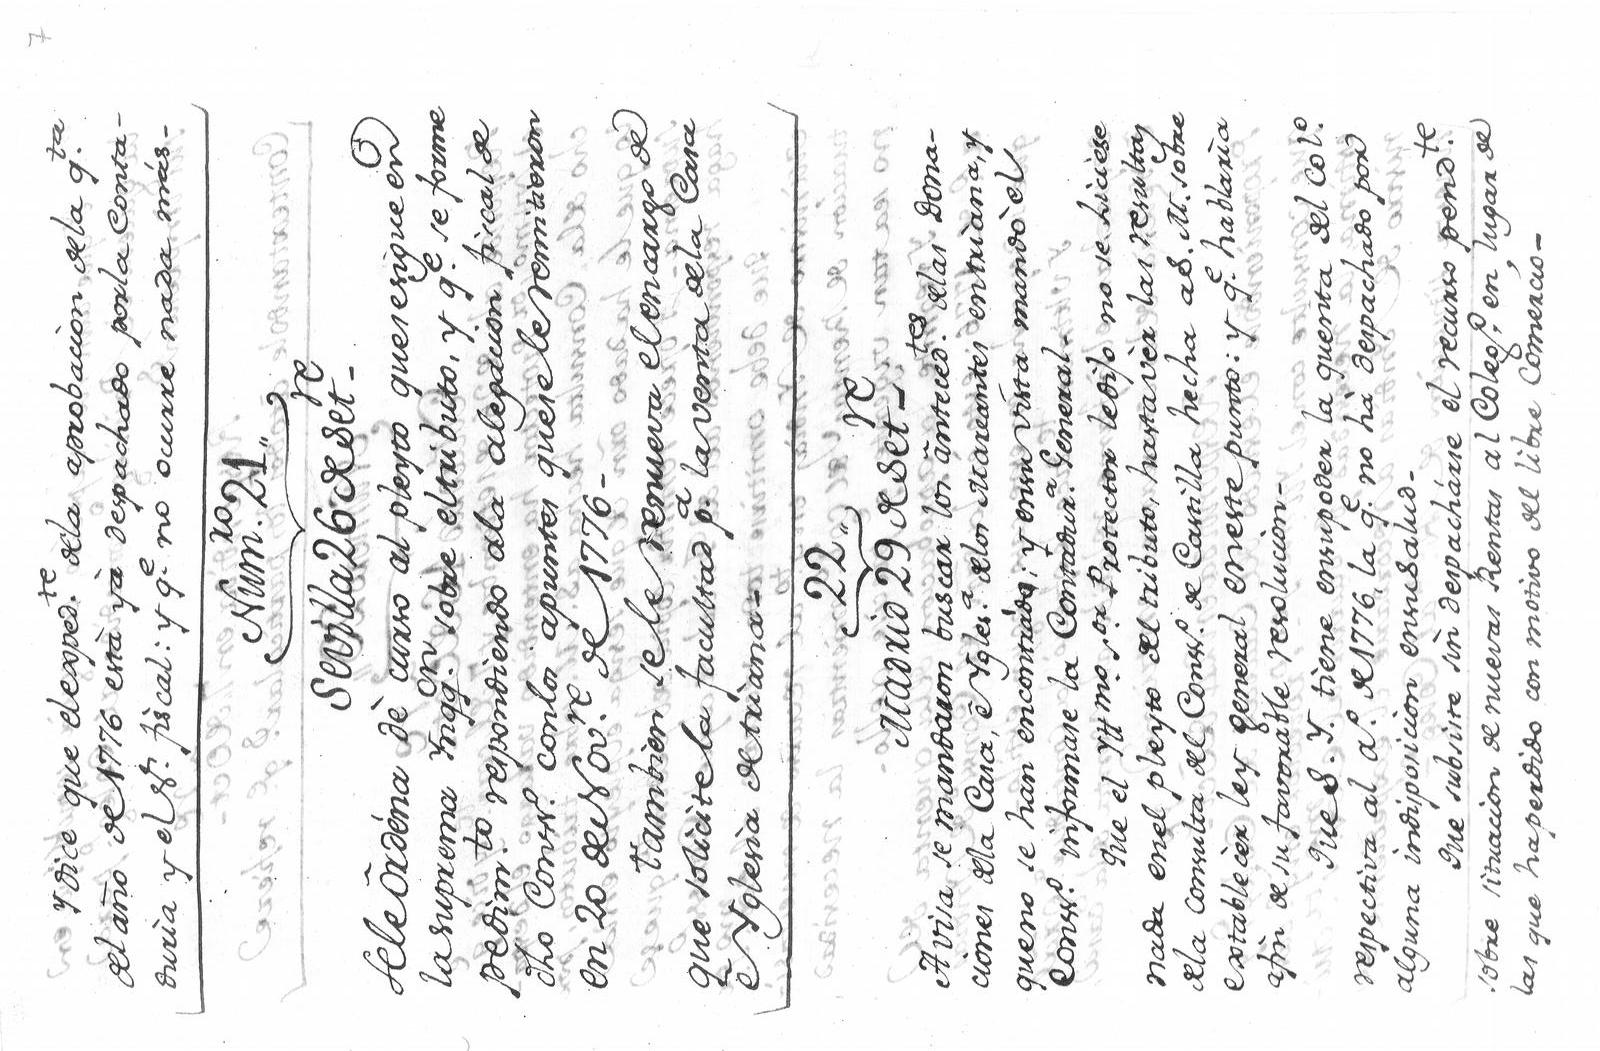 7
Y dice que el exped.te dela aprobacion dela q.ta
del año de 1776 está yà despachado porla Conta-
duria y el S.r fiscal: y q.e no ocurre nada más.-
Num.ro 21,,
Sevilla 26 de Set.re-
Sele Ordéna dè curso al pleyto que se sigue en
la suprema Ynqq.on sobre el tributo, y q.e se forme
pedim.to respondiendo ala alegacion fiscal de
dho Cons.o conlos apuntes que se le remitieron
en 20 de Nov.re de 1776-
Tambien se le renueva el encargo de
que solicite la facultad p.a la venta dela Casa
è Yglesia de triana-
22,,
Madrid 29 de Set.re-
Avisa se mandaron buscar los anteced.tes delas Dona-
ciones dela Casa, è Ygles.a delos Mareantes en triana, y
que no se han encontrado; y en su vista mandò el
Cons.o informase la Contadur.a General.-
Que el Yllmo S.or Protector le dijo no se hiciese
nada en el pleyto del tributo, hasta vèr las resultas
dela Consulta del Cons.o de Castilla hecha a S. M. sobre
establecèr ley general en este punto: y q.e hablaria
afin de su favorable resolucion-
Que S. Y. tiene en su poder la quenta del Col.o
respectiva al a.o de 1776, la q.e no hà despachado por
alguna indisposicion en su salud-
Que subsiste sin despacharse el recurso pend.te
sobre situacion de nuevas Rentas al Coleg.o, en lugar de
las que ha perdido con motivo del libre Comercio-